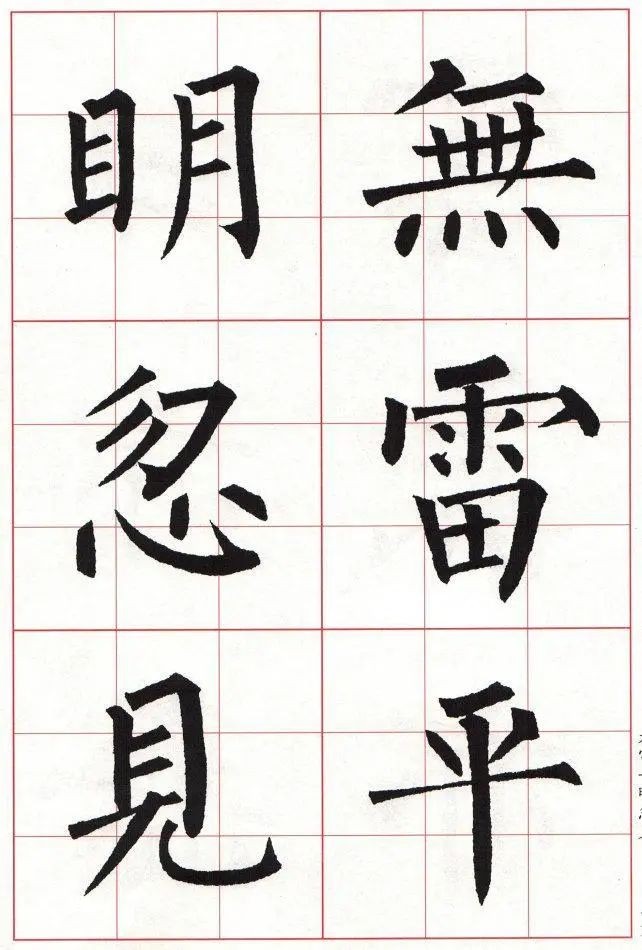 無雷平
眀忽見